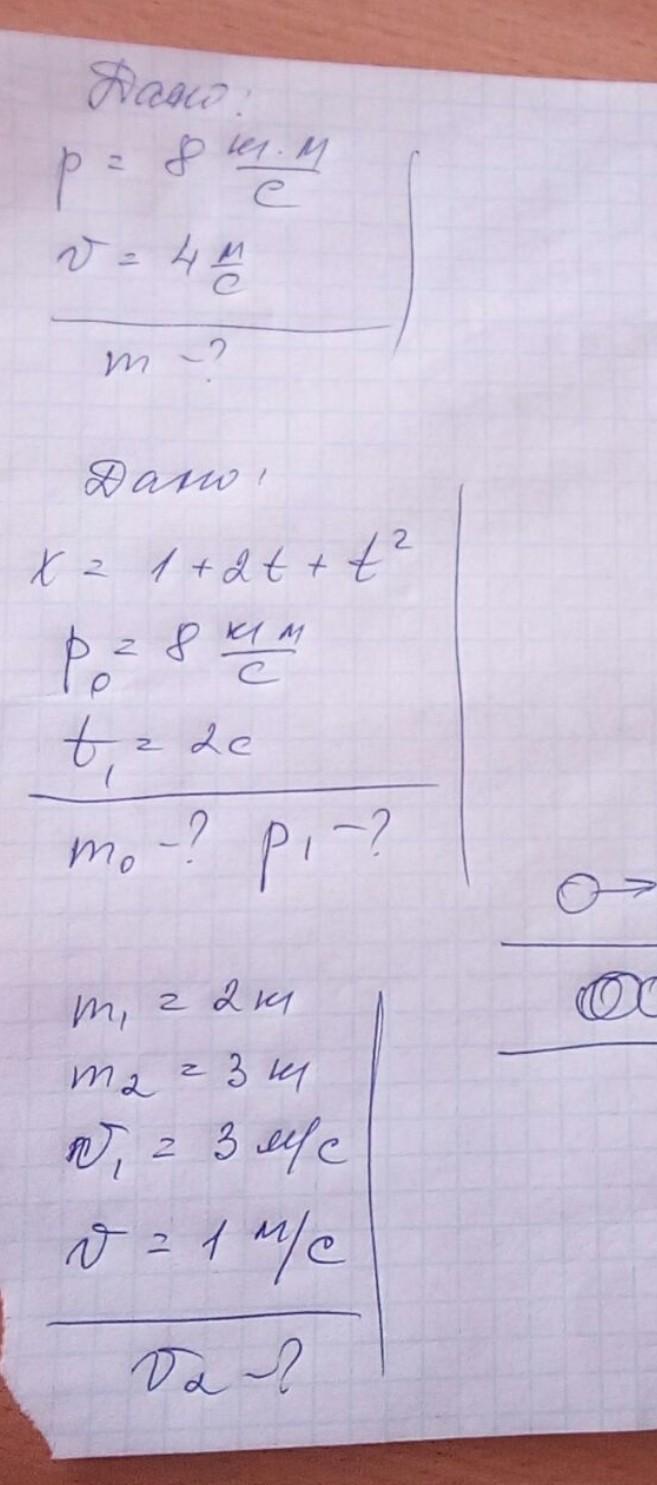 Дано:
p = 8 кг·м/с
v = 4 м/с
m - ?
Дано:
x = 1 + 2t + t²
p₀ = 8 кг м/с
t₁ = 2с
m₀ - ? p₁ - ?
m₁ = 2 кг
m₂ = 3 кг
v₁ = 3 м/с
v = 1 м/с
v₂ - ?